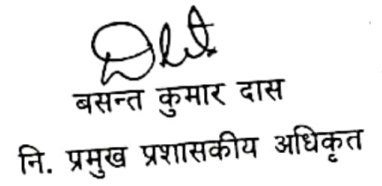 बसन्त कुमार दास
नि. प्रमुख प्रशासकीय अधिकृत